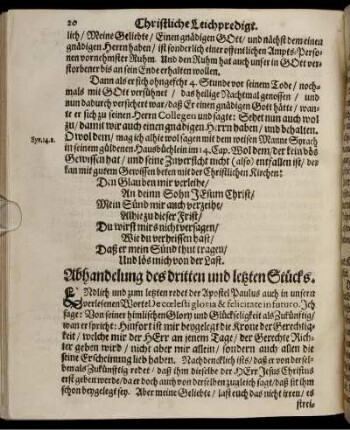 20 Christliche Leichpredigt.
lich / Meine Geliebte / Einen gnädigen GOtt / und nächst dem einen
gnädigen Herrn haben / ist sonderlich einer offentlichen Ampts-Perso-
nen vornehmster Ruhm. Und den Ruhm hat auch unser in GOtt ver-
storbener biß an sein Ende erhalten wollen.
Dann als er sich ohngefehr 4. Stunde vor seinem Tode / noch-
mals mit GOtt versühnet / das heilige Nachtmal genossen / und
nun dadurch versichert war / daß Er einen gnädigen Gott hätte / wan-
te er sich zu seinen Herrn Collegen und sagte: Sehet nun auch wol
zu / damit wir auch einen gnädigen Herrn haben / und behalten.
Syr. 14. 2.
O wol dem / mag ich alhie wol sagen mit dem weisen Manne Syrach
in seinem güldenen Hausbüchlein im 14. Cap. Wol dem / der kein bös
Gewissen hat / und seine Zuversicht nicht (also) entfallen ist / der
kan mit gutem Gewissen beten mit der Christlichen Kirchen:
Den Glauben mir verleihe /
An deinn Sohn JEsum Christ /
Mein Sünd mir auch verzeihe /
Alhie zu dieser Frist /
Du wirst mirs nicht versagen /
Wie du verheissen hast /
Daß er mein Sünd thut tragen /
Und lös mich von der Last.
Abhandelung des dritten und letzten Stücks.
ENdlich und zum letzten redet der Apostel Paulus auch in unsern
vorlesenen Worten De cœlesti gloria & felicitate in futuro. Ich
sage: Von seiner himlischen Glory und Glückseligkeit als Zukünftig /
wan er spricht: Hinfort ist mir beygelegt die Krone der Gerechtig-
keit / welche mir der HErr an jenem Tage / der Gerechte Rich-
ter geben wird / nicht aber mir allein / sondern auch allen die
seine Erscheinung lieb haben. Nachdencklich ists / daß er von dersel-
ben als Zukünftig redet / daß ihm dieselbe der HErr Jesus Christus
erst geben werde / da er doch auch von derselben zugleich sagt / daß sie ihm
schon beygelegt sey. Aber meine Geliebte / last euch das nicht irren / es
strei-